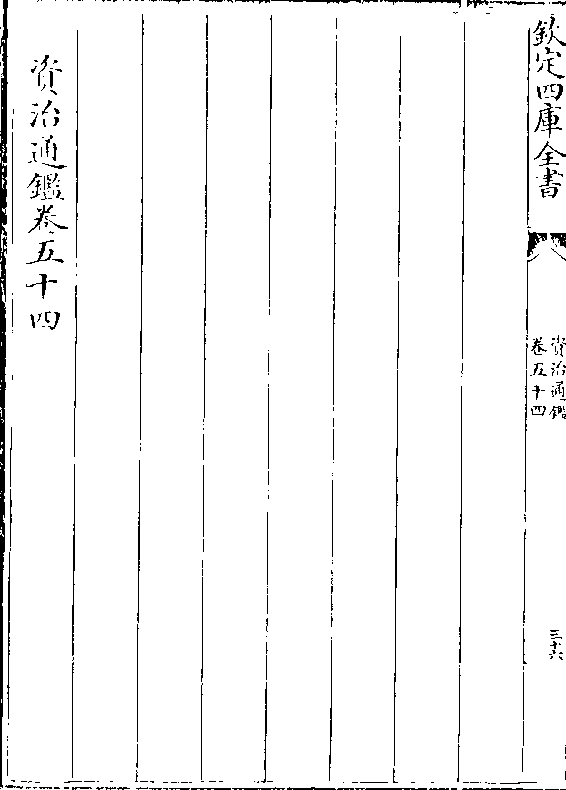 欽定四庫全書
資治通鑑
卷五十四
三十六
資治通鑑卷五十四